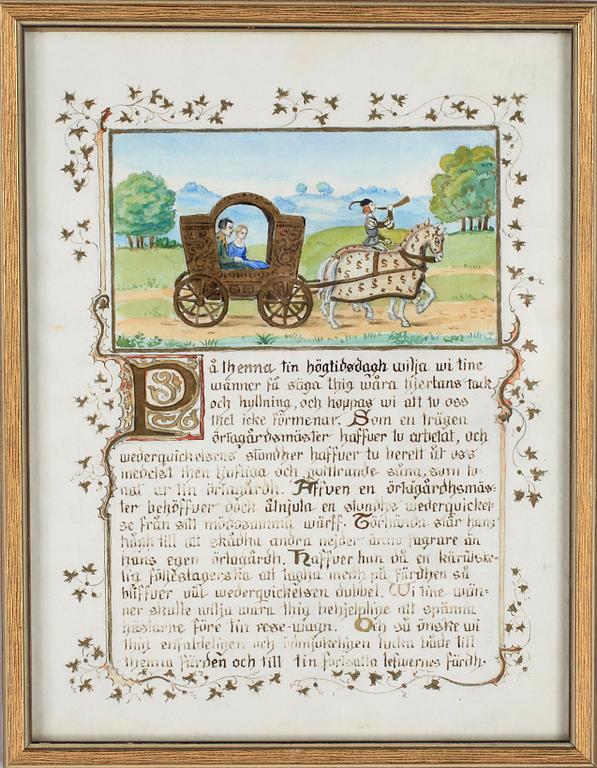 På thenna tin högtidsdagh wilja wi tine
wänner få säga thig wåra hjertans tack
och hyllning, och hoppas wi att tu oss
thet icke förmenar. Som en trägen
örtagårdsmäster haffver tu arbetat, och
wederquickelsens stunder haffver tu berett åt oss
medelst then ljufliga och qvittrande sång, som tu
uti tin örtagårdh. Äffven en örtagårdhsmäs-
ter behöffver doch åtnjuta en stundhs wederquickel-
se från sitt mödosamma wärff. Törhända står hans
hogh till att skådha andra nejder ännu fagrare än
hans egen örtagårdh. Haffver han då en käräske-
lig följeslagerska att tagha medh på färdhen så
bliffver väl wederquickelsen dubbel. Wi tine wän-
ner skulle wilja wara thig behjelplige att spänna
hästarne före tin rese-wagn. Och så önske wi
thig enfaldeligen och ödmjukeligen lycka både till
thenna färden och till tin fortsatta lefwernes färdh.